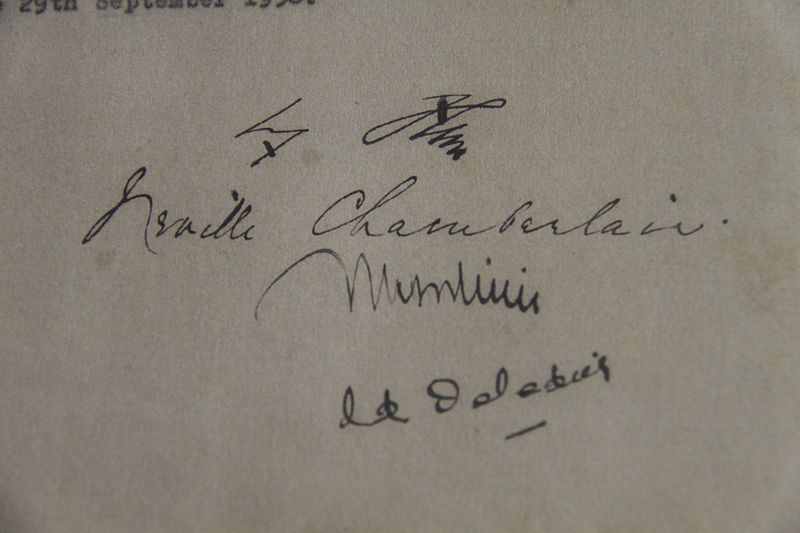 29th September 1938.
Neville Chamberlain.
Mussolini
Ed Daladier